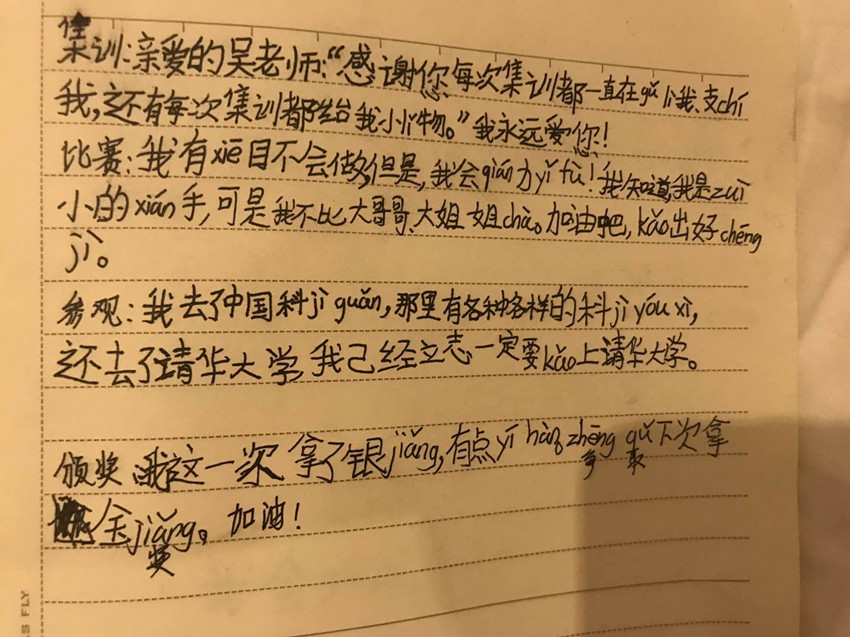 集训:亲爱的吴老师:“感谢您每次集训都一直在gǔ lì我、支chí
我,还有每次集训都给我小小物。”我永远爱您!
比赛:我有xiē目不会做,但是,我会qián力yǐ fù!我知道,我是zuì
小的xiǎn手,可是我不比大哥哥、大姐姐chà。加油吧,kǎo出好chéng
jì。
参观:我去了中国科jì guǎn,那里有各种各样的科jì yóu xì,
还去了请华大学,我己经立志,一定要kǎo上请华大学。
颁奖 我这一次拿了银jiǎng,有点yí hàn,zhēng qǔ下次拿
争 取
金jiǎng。加油!
奖
S FLY